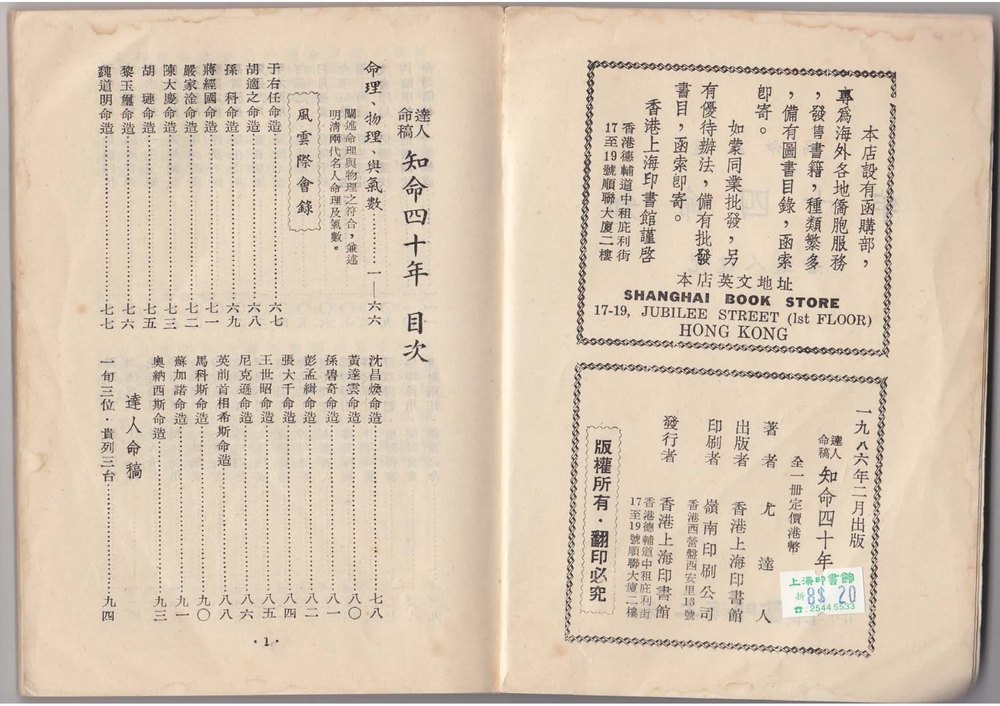 本店設有函購部，
專爲海外各地僑胞服務
，發售書籍，種類繁多
，備有圖書目錄，函索
卽寄。
如蒙同業批發，另
有優待辦法，備有批發
書目，函索卽寄。
香港上海印書館謹啓
香港德輔道中租庇利街
17至19號順聯大廈二樓
本店英文地址
SHANGHAI BOOK STORE
17-19, JUBILEE STREET (1st FLOOR)
HONG KONG
一九八六年二月出版
達人命稿 知命四十年
全一冊定價港幣
上海印書館
折 8$ 20
☎:2544 5533
著者 尤達人
出版者 香港上海印書館
印刷者 嶺南印刷公司
香港西營盤西安里13號
發行者 香港上海印書館
香港德輔道中租庇利街
17至19號順聯大廈二樓
版權所有·翻印必究
達人命稿 知命四十年 目次
命理、物理、與氣數……一—六六
闡述命理與物理之符合，兼述
明清兩代名人命理及氣數。
風雲際會錄
于右任命造……六七
胡適之命造……六八
孫 科命造……六九
蔣經國命造……七一
嚴家淦命造……七二
陳大慶命造……七三
胡 璉命造……七五
黎玉璽命造……七六
魏道明命造……七七
沈昌煥命造……七八
黃達雲命造……八〇
孫碧奇命造……八一
彭孟緝命造……八二
張大千命造……八四
王世昭命造……八五
尼克遜命造……八六
英前首相希斯命造……八八
馬科斯命造……九〇
蘇加諾命造……九一
奧納西斯命造……九三
達人命稿
一旬三位·貴列三台……九四
·1·